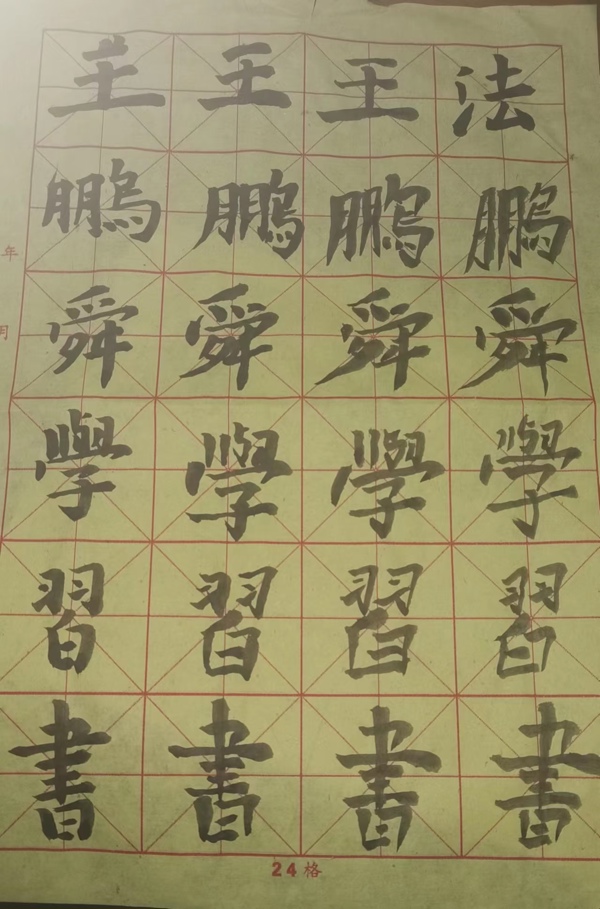 主王王法
鵬鵬鵬鵬
舜舜舜舜
學學學學
習習習習
書書書書
年
月
24格